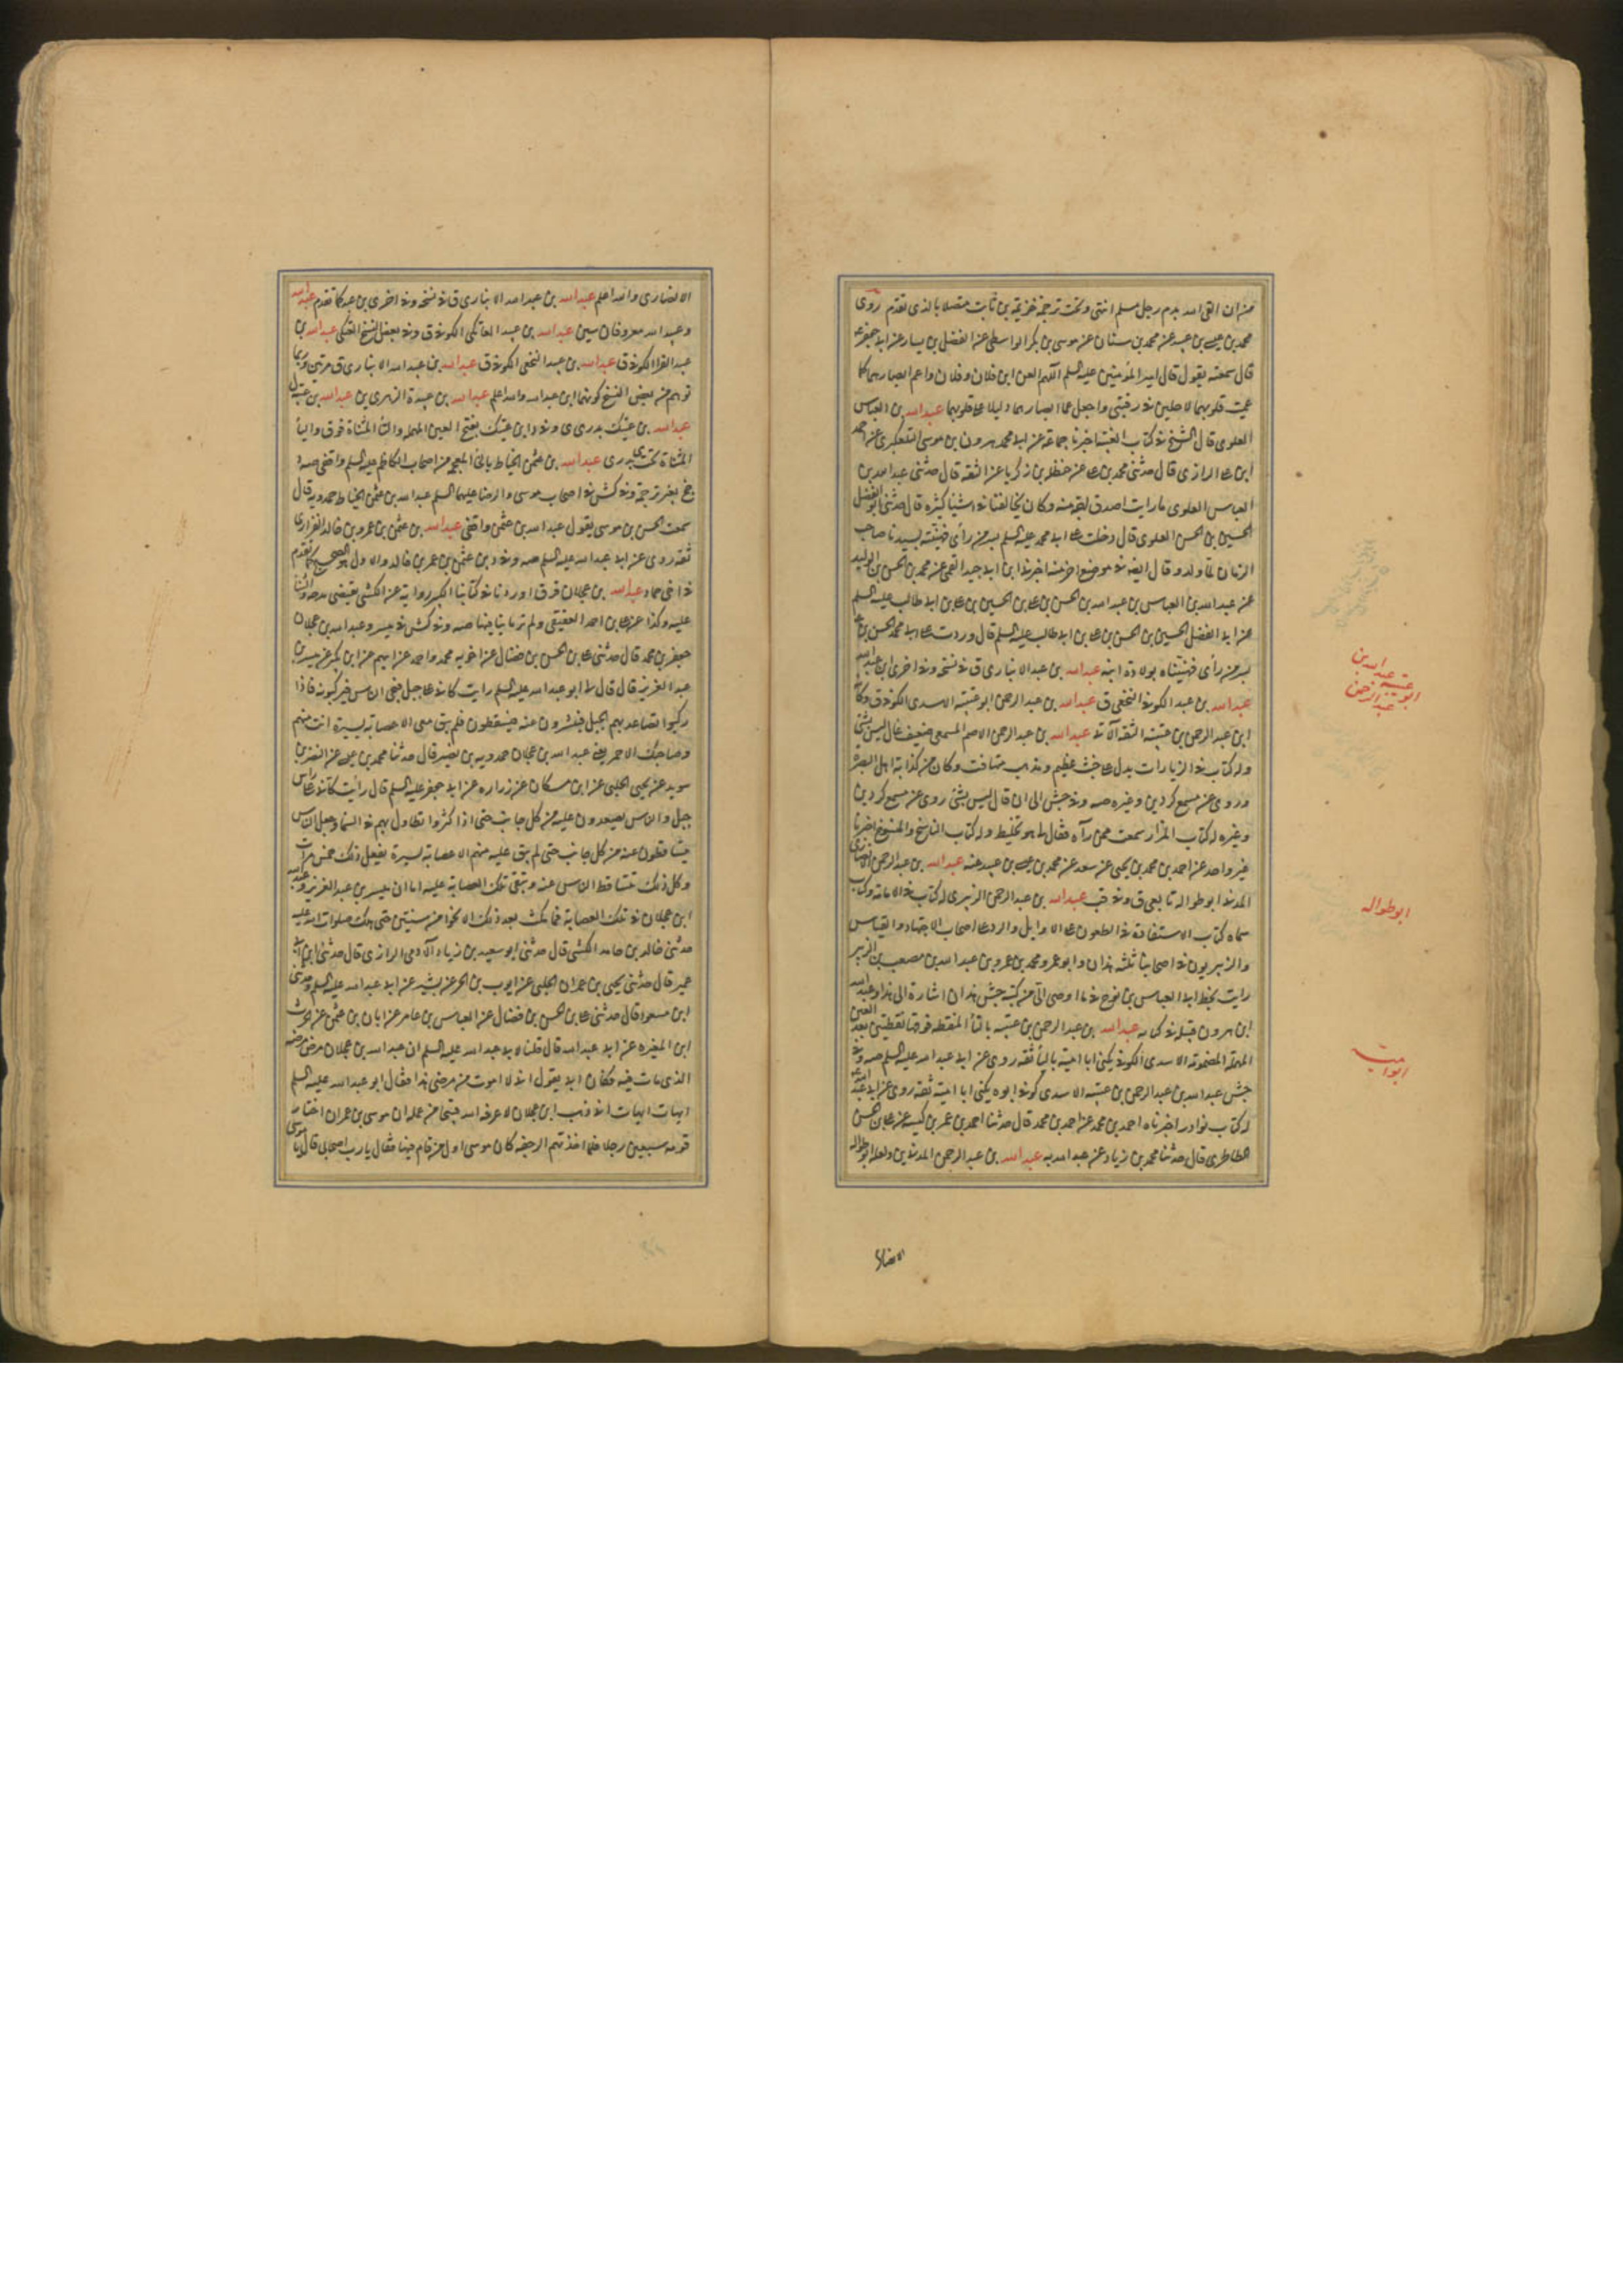 من ان القى الله بدم رجل مسلم انتهى وتحت ترجمة خزيمة بن ثابت متصلا بالذي تقدم روى
محمد بن عيسى بن عبيد عن محمد بن سنان عن موسى بن بكر الواسطي عن الفضيل بن يسار عن ابي جعفر ع
قال سمعته يقول قال امير المؤمنين عليه السلم اللهم العن ابني فلان وفلان واعم ابصارهما كما
عميت قلوبهما الاجلين في رقبتي واجعل عما ابصارهما دليلا على قلوبهما عبد الله بن العباس
العلوي قال الشيخ في كتاب الغيبة اخبرنا جماعة عن ابي محمد هرون بن موسى التلعكبري عن احمد
ابن علي الرازي قال حدثني محمد بن علي عن حنظلة بن زكريا عن الثقة قال حدثني عبد الله بن
العباس العلوي ما رايت اصدق لهجة منه وكان يخالفنا في اشياء كثيرة قال حدثني ابو الفضل
الحسين بن الحسن العلوي قال دخلت على ابي محمد عليه السلم بسر من رأى فهنئته بسيدنا صاحب
الزمان لما ولد وقال ايضا في موضع اخر منه اخبرني ابن ابي جيد القمي عن محمد بن الحسن بن الوليد
عن عبد الله بن العباس بن عبد الله بن الحسن بن علي بن الحسين بن علي بن ابي طالب عليه السلم
عن ابي الفضل الحسين بن الحسن بن علي بن ابي طالب عليه السلم قال وردت على ابي محمد الحسن بن علي
بسر من رأى فهنيناه بولادة ابنه عبد الله بن عبد الانباري ق في نسخة وفي اخرى ابن عبد الله
عبد الله بن عبد الكوفي النخعي ق عبد الله بن عبد الرحمن ابو عتيبة الاسدي الكوفي ق وكانه
ابن عبد الرحمن بن عتيبة الثقة الآتي عبد الله بن عبد الرحمن الاصم المسمعي ضعيف غال ليس بشئ
وله كتاب في الزيارات يدل على خبث عظيم ومذهب متهافت وكان من كذابة اهل البصرة
وروى عن مسمع كردين وغيره صه وفي جش الى ان قال ليس بشئ روى عن مسمع كردين
وغيره له كتاب المزار سمعت ممن رآه فقال لي هو تخليط وله كتاب الناسخ والمنسوخ اخبرنا
غير واحد عن احمد بن محمد بن يحيى عن سعد عن محمد بن عيسى بن عبيد عنه عبد الله بن عبد الرحمن الانصاري
المدني ابو طوالة تابعي ق وفي قب عبد الله بن عبد الرحمن الزبيري له كتاب في الامامة وكتاب
سماه كتاب الاستفادة في الطعون على الاوايل والرد على اصحاب الاجتهاد والقياس
والزبيريون في اصحابنا ثلثة هذان وابو عمرو محمد بن عمرو بن عبد الله بن مصعب بن الزبير
رايت بخط ابي العباس بن نوح فيما اوصى الي من كتبه جش هذان اشارة الى هذا وعبد الله
ابن هرون قبله في كتابه عبد الله بن عبد الرحمن بن عتيبة بالتاء المنقطة فوقها نقطتين بعد العين
المهملة المضمومة الاسدي الكوفي يكنى ابا امية بالياء ثقة روى عن ابي عبد الله عليه السلم صه وفي
جش عبد الله بن عبد الرحمن بن عتيبة الاسدي كوفي ابوه يكنى ابا امية ثقة روى عن ابي عبد الله ع
له كتاب نوادر اخبرناه احمد بن محمد عن احمد بن محمد قال حدثنا احمد بن عمر بن كيسبة عن علي بن الحسن
الطاطري قال حدثنا محمد بن زياد عن عبد الله به عبد الله بن عبد الرحمن المدني ين ولعله ابو طوالة
عبد الله بن
ابو عتيبة
عبد الرحمن
ابو طواله
ابو امية
الانصاري
الانصاري والله اعلم عبد الله بن عبد الله الانباري ق في نسخة وفي اخرى بن عبد كما تقدم عبد الله
وعبيد الله معروفان سين عبد الله بن عبد العاتكي الكوفي ق وفي بعض النسخ العتكي عبد الله بن
عبد القرا الكوفي ق عبد الله بن عبد النخعي الكوفي ق عبد الله بن عبد الله الانباري ق مرتين وربما
توهم من بعض النسخ كونهما ابن عبيد الله والله اعلم عبد الله بن عبيدة الزهري ين عبد الله بن عتيك
عبد الله بن عتيك بدري ي وفي د ابن عتيك بفتح العين المهملة والتاء المثناة فوق والياء
المثناة تحت بدري عبد الله بن عثمن الخياط بالخاء المعجمة من اصحاب الكاظم عليه السلم واقفي صه د
جخ بغير ترجمة وفي كش في اصحاب موسى والرضا عليهما السلم عبد الله بن عثمن الخياط حمدويه قال
سمعت الحسن بن موسى يقول عبد الله بن عثمن واقفي عبد الله بن عثمن بن عمرو بن خالد الفزاري
ثقة روى عن ابي عبد الله عليه السلم صه وفي د بن عثمن بن عمر بن خالد والاول الصحيح كما تقدم
في اخي حماد عبد الله بن عجلان ق ق ق اوردنا في كتابنا الكبير رواية عن الكشي تقتضي مدحه والثناء
عليه وكذا عن علي بن احمد العقيقي ولم نر ما ينافيها صه وفي كش في ميسر وعبد الله بن عجلان
جعفر بن محمد قال حدثني علي بن الحسن بن فضال عن اخويه محمد واحمد عن ابيهم عن ابن بكير عن ميسر بن
عبد العزيز قال قال لي ابو عبد الله عليه السلم رايت كاني على جبل فيجئ الناس فيركبونه فاذا
ركبوا تصاعد بهم الجبل فينتثرون عنه فيسقطون فلم يبق معي الا عصابة يسيرة انت منهم
وصاحبك الاحمر يعني عبد الله بن عجلان حمدويه بن نصير قال حدثنا محمد بن عيسى عن النضر بن
سويد عن يحيى الحلبي عن ابن مسكان عن زراره عن ابي جعفر عليه السلم قال رأيت كاني على راس
جبل والناس يصعدون عليه من كل جانب حتى اذا كثروا تطاول بهم في السماء وجعل الناس
يتساقطون عنه من كل جانب حتى لم يبق عليه منهم الا عصابة يسيرة يفعل ذلك خمس مرات
وكل ذلك يتساقط الناس عنه وتبقى تلك العصابة عليه اما ان ميسر بن عبد العزيز وعبد الله
ابن عجلان في تلك العصابة فما مكث بعد ذلك الا نحوا من سنتين حتى هلك صلوات الله عليه
حدثني خالد بن حامد الكشي قال حدثني ابو سعيد بن زياد الآدمي الرازي قال حدثني ابن ابي
عمير قال حدثني يحيى بن عمران الحلبي عن ايوب بن الحر عن بشير عن ابي عبد الله عليه السلم وحدثني
ابن مسعود قال حدثني علي بن الحسن بن فضال عن العباس بن عامر عن ابان بن عثمن عن الحرث
ابن المغيرة عن ابي عبد الله قال قلنا لابي عبد الله عليه السلم ان عبد الله بن عجلان مرض مرضه
الذي مات فيه فكان ابي يقول اني لا اموت من مرضي هذا فقال ابو عبد الله عليه السلم
ايهات ايهات اني ذهب ابن عجلان لا عرفه الله قبيحا من عمله ان موسى بن عمران اختار
قومه سبعين رجلا فلما اخذتهم الرجفة كان موسى اول من قام منها فقال يا رب اصحابي قال يا موسى